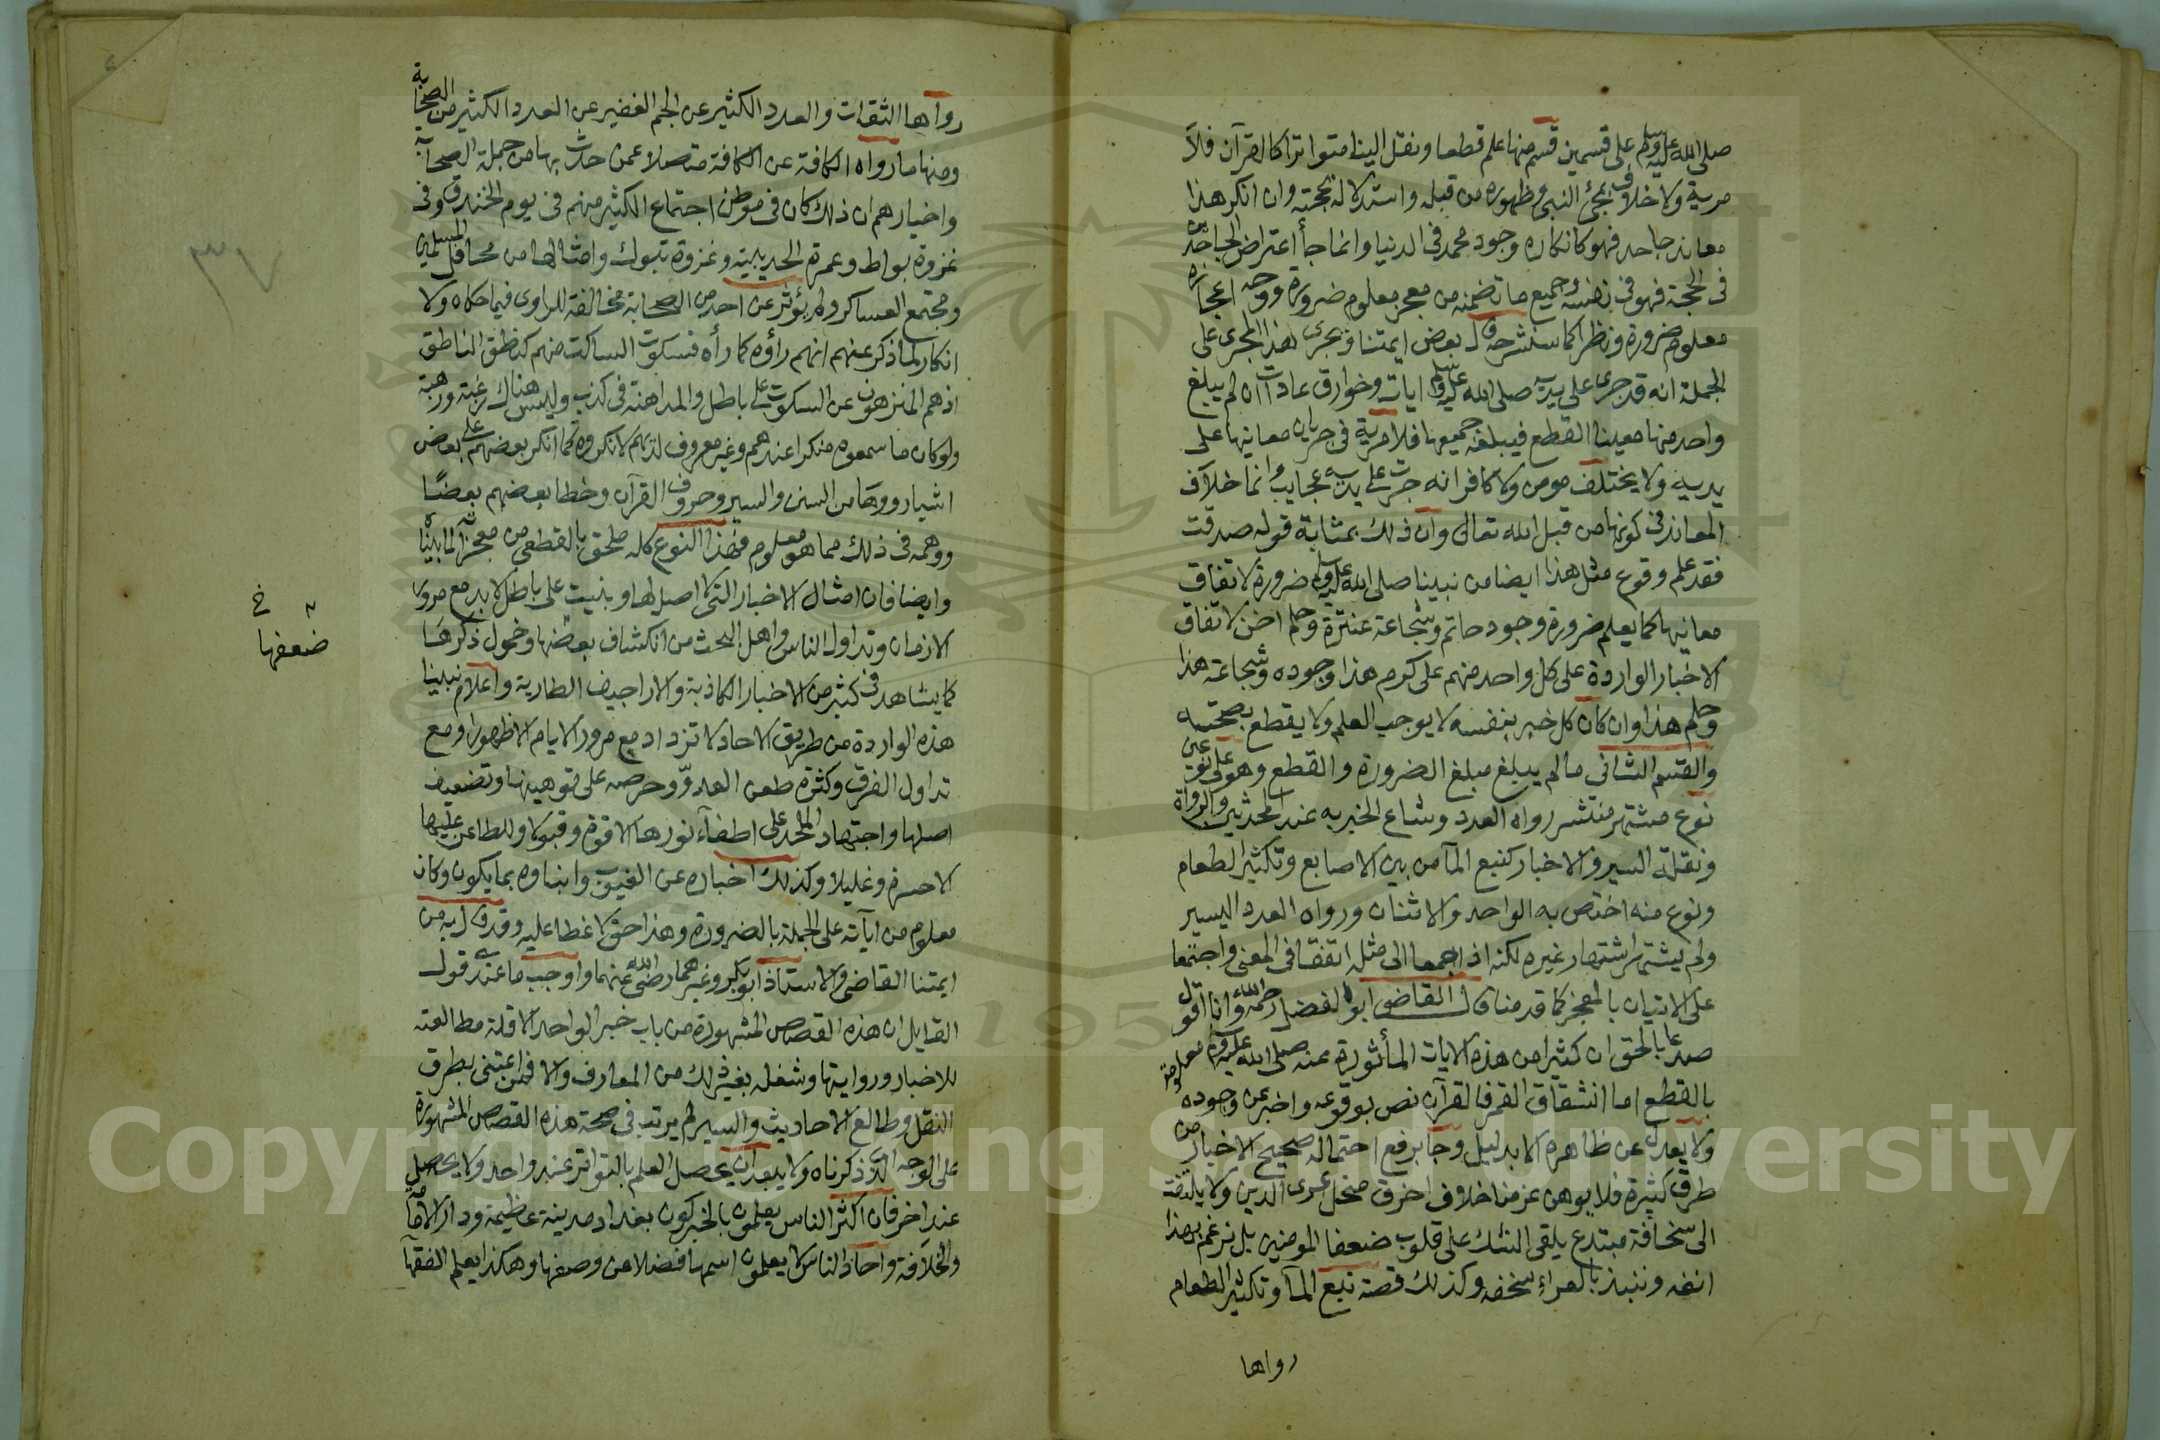 صلى الله عليه وسلم على قسمين قسم منها علم قطعا ونقل الينا متواترا كالقرآن فلا
مرية ولا خلاف بمجئ النبى وظهوره من قبله واستدلاله بحجته وان انكر هذا
معاند جاحد فهو كانكاره وجود محمد فى الدنيا وانما جأ اعتراض الجاحدين
فى الحجة فهو فى نفسه وجميع ما تضمنه من معجز معلوم ضرورة ووجه اعجازه
معلوم ضرورة ونظرا كما سنشرحه قال بعض ايمتنا ويجرى هذا المجرى على
الجملة انه قد جرى على يديه صلى الله عليه وسلم ايات وخوارق عادات ان لم يبلغ
واحد منها معينا القطع فيبلغه جميعها فلا مرية فى جريان معانيها على
يديه ولا يختلف مومن ولا كافر انه جرت على يديه عجايب وانما خلاف
المعاند فى كونها من قبل الله تعالى وان ذلك بمثابة قوله صدقت
فقد علم وقوع مثل هذا ايضا من نبينا صلى الله عليه وسلم ضرورة لاتفاق
معانيها كما يعلم ضرورة وجود حاتم وشجاعة عنترة وحلم احنف لاتفاق
الاخبار الواردة على كل واحد منهم على كرم هذا وجوده وشجاعة هذا
وحلم هذا وان كان كل خبر بنفسه لا يوجب العلم ولا يقطع بصحته
والقسم الثانى ما لم يبلغ مبلغ الضرورة والقطع وهو على نوعين
نوع مشتهر منتشر رواه العدد وشاع الخبر به عند المحدثين والرواة
ونقلة السير والاخبار كنبع المآ من بين الاصابع وتكثير الطعام
ونوع منه اختص به الواحد والاثنان ورواه العدد اليسير
ولم يشتهر اشتهار غيره لكنه اذا جمع الى مثله اتفقا فى المعنى واجتمعا
على الاتيان بالمعجز كما قدمنا قال القاضى ابو الفضل رحمه الله وانا اقول
صدعا بالحق ان كثيرا من هذه الايات المأثورة عنه صلى الله عليه وسلم معلومة
بالقطع اما انشقاق القمر فالقرآن نص بوقوعه واخبر عن وجوده
ولا يعدل عن ظاهره الا بدليل وجا برفع احتماله صحيح الاخبار من
طرق كثيرة فلا يوهن عزمنا خلاف اخرق منحل عرى الدين ولا يلتفت
الى سخافة مبتدع يلقى الشك على قلوب ضعفا المومنين بل نرغم بهذا
انفه وننبذ بالعراء سخفه وكذلك قصة نبع المآ وتكثير الطعام
رواها
رواها الثقات والعدد الكثير عن الجم الغفير عن العدد الكثير من الصحابة
ومنها ما رواه الكافة عن الكافة متصلا عمن حدث بها من جملة الصحابة
واخبارهم ان ذلك كان فى موطن اجتماع الكثير منهم فى يوم الخندق وفى
غزوة بواط وعمرة الحديبية وغزوة تبوك وامثالها من محافل المسلمين
ومجتمع العساكر ولم يؤثر عن احد من الصحابة مخالفة للراوى فيما حكاه ولا
انكار لما ذكر عنهم انهم رأوه كما رأه فسكوت الساكت منهم كنطق الناطق
اذ هم المنزهون عن السكوت على باطل والمداهنة فى كذب وليس هناك رغبة ورهبة
ولو كان ما سمعوه منكرا عندهم وغير معروف لديهم لانكروه كما انكر بعضهم على بعض
اشيا رووها من السنن والسير وحروف القرآن وخطا بعضهم بعضًا
ووهمه فى ذلك مما هو معلوم فهذا النوع كله ملحق بالقطعى من معجزاته لما بيناه
وايضا فان امثال الاخبار التى لا اصل لها وبنيت على باطل لا بد مع مرور
الازمان وتداول الناس واهل البحث من انكشاف بعضها وخمول ذكرها
كما يشاهد فى كثير من الاخبار الكاذبة والاراجيف الطارية واعلام نبينا
هذه الواردة من طريق الاحاد لا تزداد مع مرور الايام الا ظهورا ومع
تداول الفرق وكثرة طعن العدوّ وحرصه على توهينها وتضعيف
اصلها واجتهاد الملحد على اطفآء نورها الا قوة وقبولا وللطاعن عليها
الا حسرة وغليلا وكذلك اخباره عن الغيوب وانباوه بما يكون وكان
معلوم من آياته على الجملة بالضرورة وهذا حق لا غطا عليه وقد قال به من
ايمتنا القاضى والاستاذ ابو بكر وغيرهما رضى الله عنهما وما اوجب ما عندى قول
القايل ان هذه القصص المشهورة من باب خبر الواحد الا قلة مطالعته
للاخبار وروايتها وشغله بغير ذلك من المعارف والا فمن اعتنى بطرق
النقل وطالع الاحاديث والسير لم يرتب فى صحة هذه القصص المشهورة
على الوجه الذى ذكرناه ولا يبعد ان يحصل العلم بالتواتر عند واحد ولا يحصل
عند اخر فان اكثر الناس يعلمون بالخبر كون بغداد مدينة عظيمة ودار الامامة
والخلافة واحاد الناس لا يعلمون اسمها فضلا عن وصفها وهكذا يعلم الفقهآ
ضعفها
خ
1957
Copyright © King Saud University